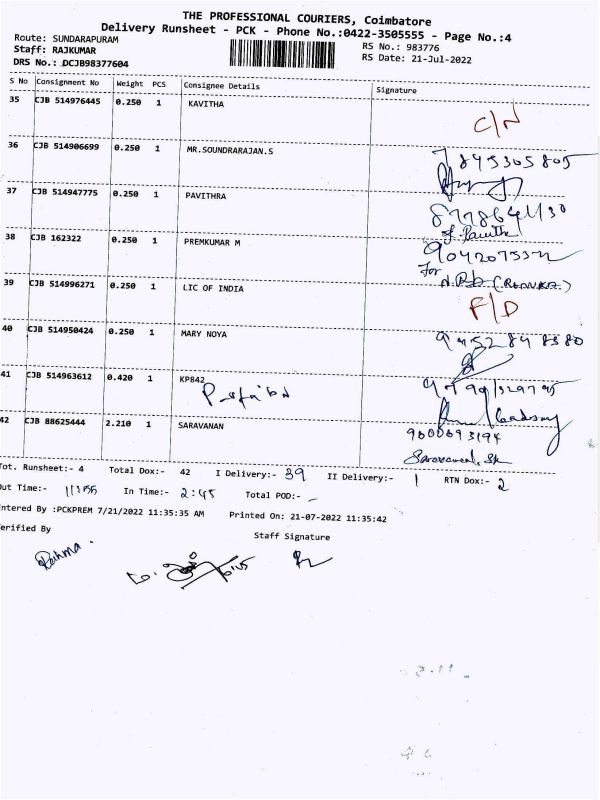 THE PROFESSIONAL COURIERS, Coimbatore
Delivery Runsheet - PCK - Phone No.:0422-3505555 - Page No.:4
Route: SUNDARAPURAM
Staff: RAJKUMAR
DRS No.: DCJB98377604
RS No.: 983776
RS Date: 21-Jul-2022
S No Consignment No Weight PCS Consignee Details Signature
35 CJB 514976445 0.250 1 KAVITHA
C/N
36 CJB 514906699 0.250 1 MR.SOUNDRARAJAN.S
7845305805
37 CJB 514947775 0.250 1 PAVITHRA
38 CJB 162322 0.250 1 PREMKUMAR M
For
39 CJB 514996271 0.250 1 LIC OF INDIA
F/D
40 CJB 514950424 0.250 1 MARY NOYA
41 CJB 514963612 0.420 1 KP842
42 CJB 88625444 2.210 1 SARAVANAN
9000693194
Tot. Runsheet:- 4 Total Dox:- 42 I Delivery:- 39 II Delivery:- 1 RTN Dox:- 2
Out Time:- 11:55 In Time:- 2:45 Total POD:- -
Entered By :PCKPREM 7/21/2022 11:35:35 AM Printed On: 21-07-2022 11:35:42
Verified By
Staff Signature